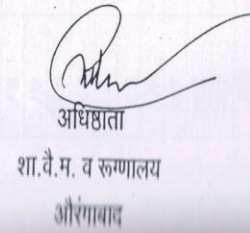 अधिष्ठाता
शा.वै.म. व रूग्णालय
औरंगाबाद